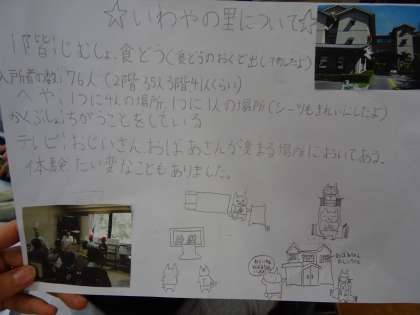 ☆いわやの里について☆
1階:じむしょ、食どう
入所者の数:76人(2階35人3階41人くらい)
へや:1つに4人の場所、1つに1人の場所(シーツもきれいにしたよ)
ちがうことをしている
テレビ:おじいさん、おばあさんが集まる場所においてある。
体験:たい変なこともありました。